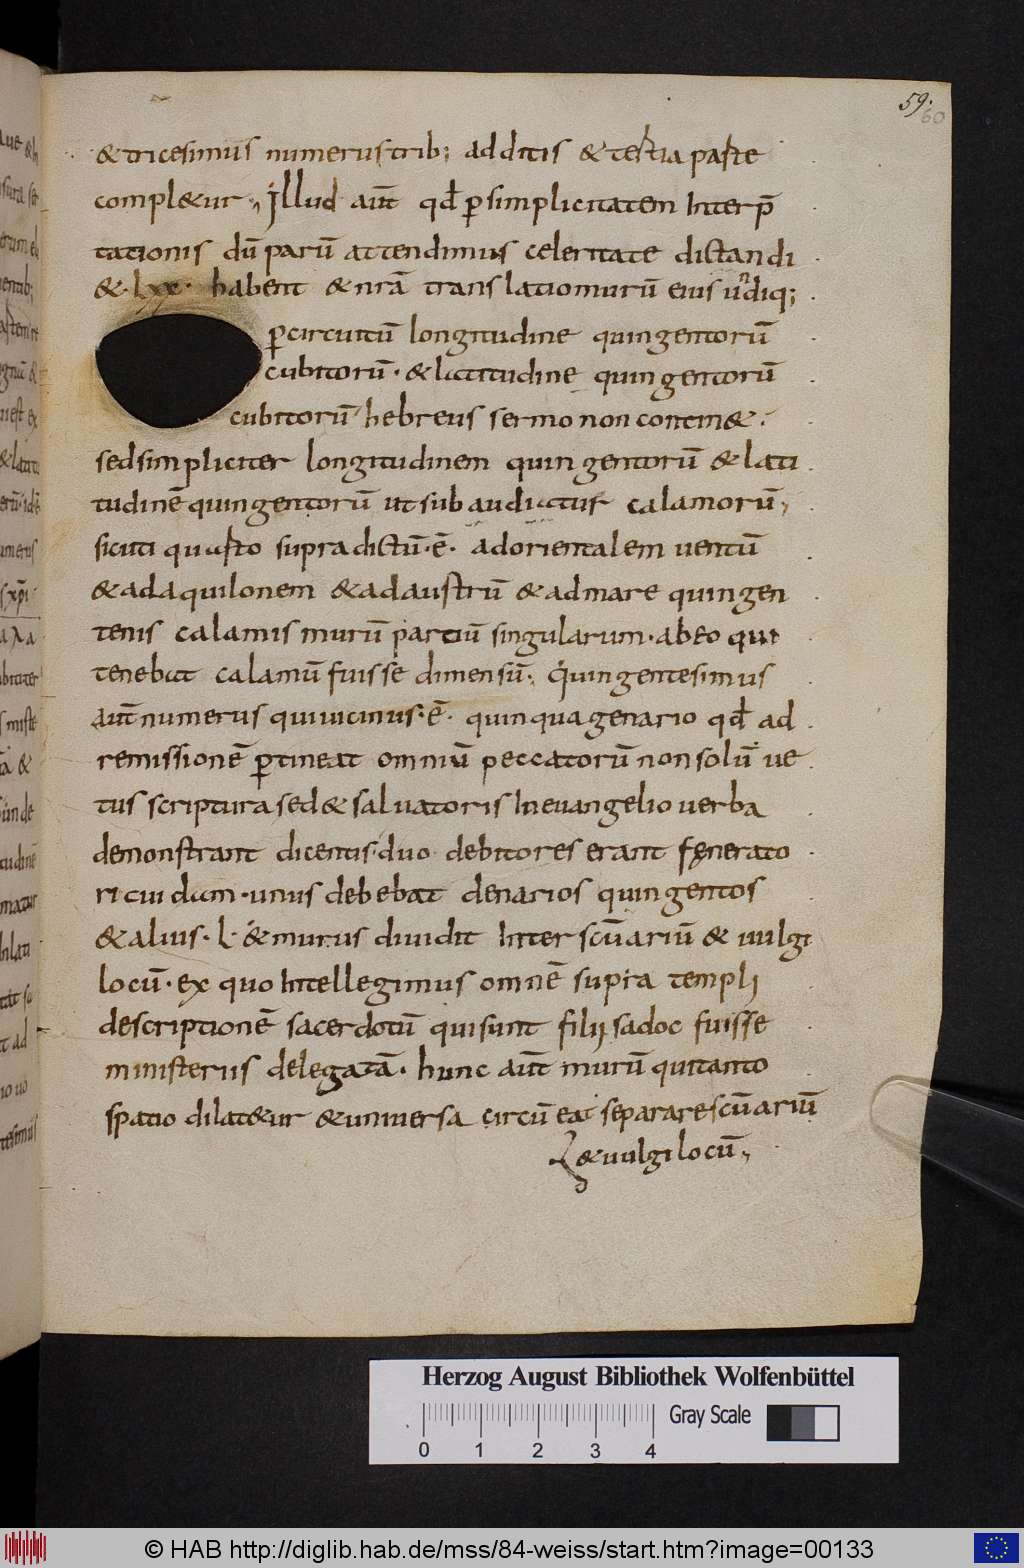 59.
60
& tricesimus numerus trib; additis & tertia parte
compl&ur, illud aut̄ qđ ꝑ simplicitatem Interp̄
tationis dū parū attendimus celeritate dictandi
& · lxx · habent & nr̄a translatio murū eius undiq;
ꝑ circuitū longitudine quingentorū
cubitorū · & latitudine quingentorū
cubitorū hebreus sermo non contin& ·
sed simpliciter longitudinem quingentorū & lati
tudinē quingentorū ut subaudiatur calamorū,
sicuti quarto supra dictū · ē · ad orientalem ventū
& ad aquilonem & ad austrū & ad mare quingen
tenis calamis murū partiū singularum · ab eo qui
tenebat calamū fuisse dimensū · quingentesimus
aut̄ numerus qui vicinus · ē · quinquagenario qđ ad
remissionē ꝑtineat omniū peccatorū non solū ve
tus scriptura sed & salvatoris In evangelio verba
demonstrant dicentis · duo debitores erant fęnerato
ri cuidam · unus debebat denarios quingentos
& alius · L · & murus dividit Inter scūariū & vulgi
locū · ex quo Intellegimus omnē supra templi
descriptionē sacerdotū qui sunt filij sadoc fuisse
ministeriis delegatā · hunc aut̄ murū qui tanto
spatio dilat&ur & universa circūeat separare scūariū
& vulgi locū,
Herzog August Bibliothek Wolfenbüttel
0 1 2 3 4
Gray Scale
© HAB http://diglib.hab.de/mss/84-weiss/start.htm?image=00133